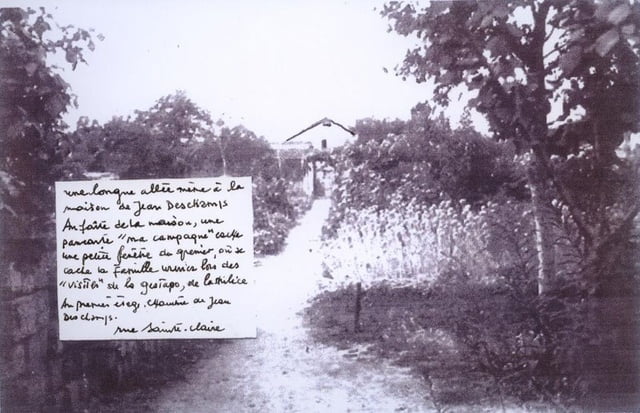 une longue allée mène à la
maison de Jean Deschamps
Au faîte de la maison, une
pancarte "ma campagne" cache
une petite fenêtre de grenier, où se
cache la famille lors des
"visites" de la gestapo, de la Milice
Au premier étage, chambre de Jean
Deschamps.
rue Sainte-Claire